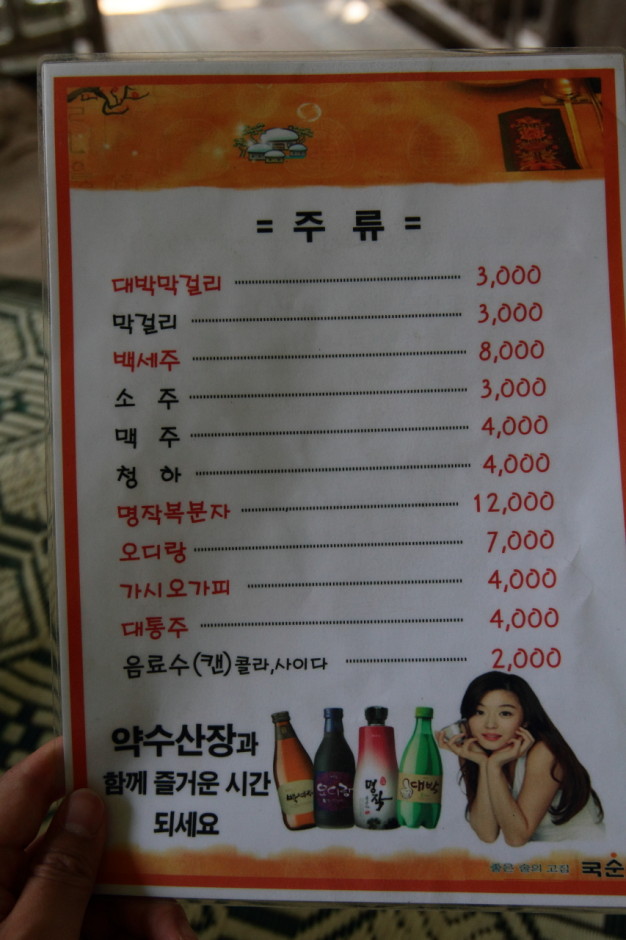 = 주 류 =
대박막걸리 3,000
막걸리 3,000
백세주 8,000
소 주 3,000
맥 주 4,000
청 하 4,000
명작복분자 12,000
오디랑 7,000
가시오가피 4,000
대통주 4,000
음료수(캔)콜라,사이다 2,000
약수산장과
함께 즐거운 시간
되세요
명작
대박
좋은 술의 고집 국순